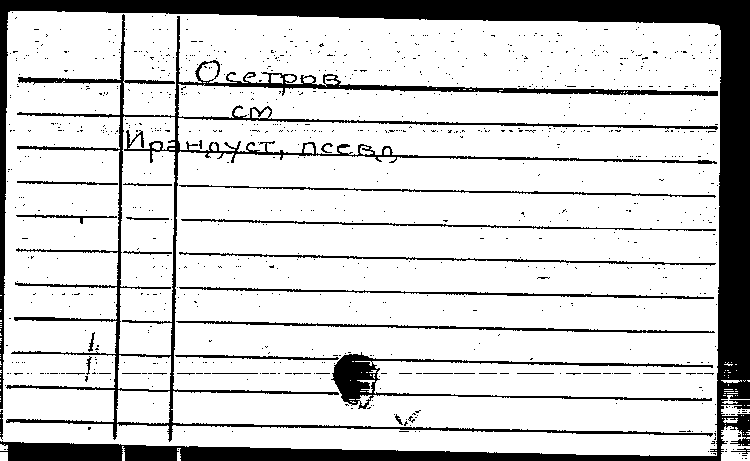 Осетров
см
Ирандуст, псевд